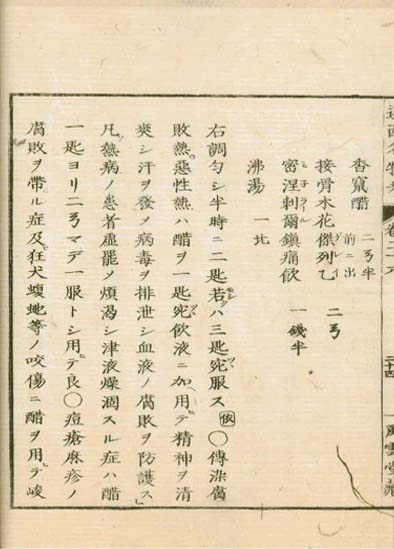 香竄醋 前ニ出 二弓半
接骨木花傑列乙 ゲレイ 二弓
密涅刺爾鎮痛飲 ミ子ラール 一銭半
沸湯 一比
右調匀シ半時ニ二匙若クハ三匙宛服ス 依 ○傳染腐
敗熱惡性熱ハ醋ヲ一匙宛飲液ニ加ヘ用テ精神ヲ清
爽シ汗ヲ發メ病毒ヲ排泄シ血液ノ腐敗ヲ防護ス
凡熱病ノ患者虚罷メ煩渇シ津液燥涸スル症ハ醋
一匙ヨリ二弓マデ一服トシ用テ良○痘瘡麻疹ノ
腐敗ヲ帯ル症及ヒ狂犬蝮蚰等ノ咬傷ニ醋ヲ用テ峻
二十四
風雲堂藏